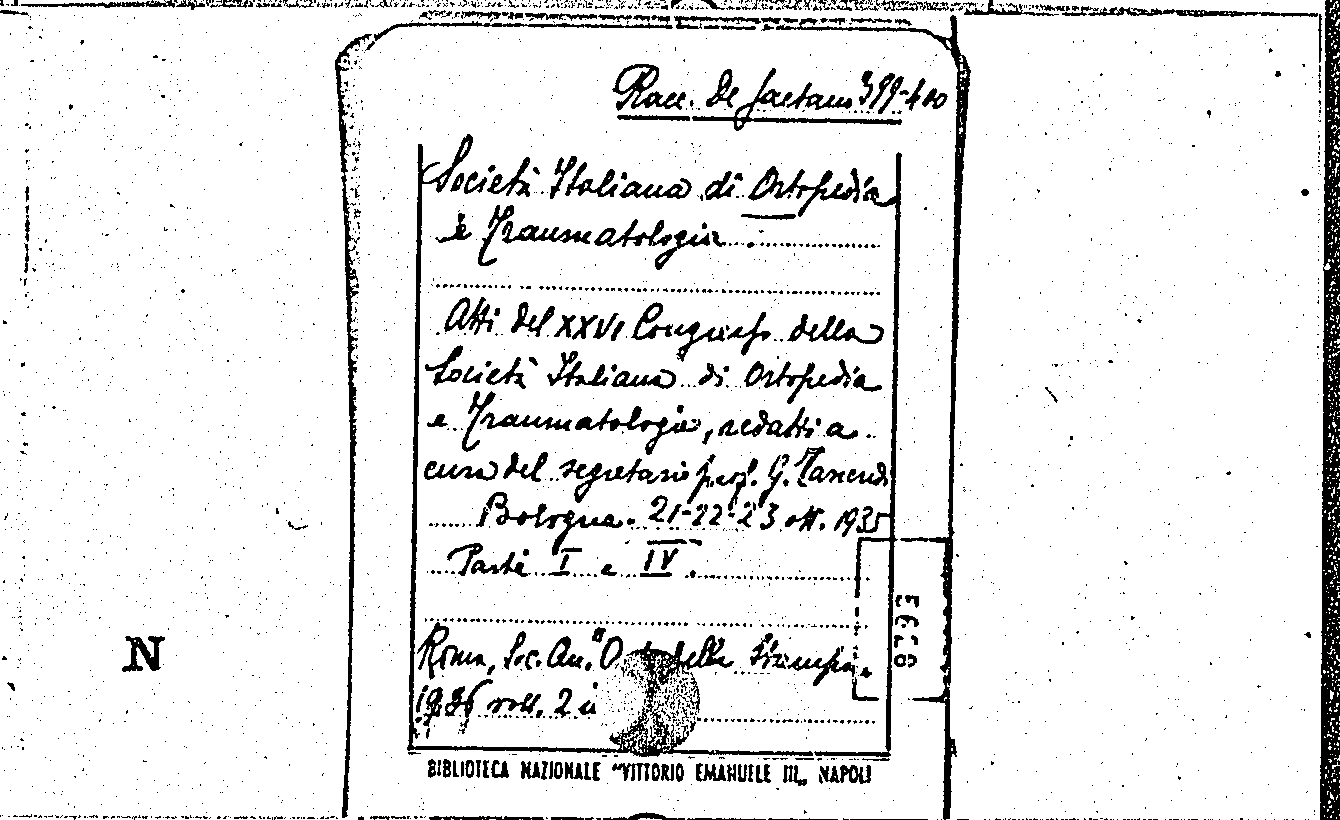 Racc. De Gaetano 399-400
Società Italiana di Ortopedia
e Traumatologia
Atti del XXVI Congresso della
Società Italiana di Ortopedia
e Traumatologia, redatti a
cura del segretario prof. G.
Bologna. 21-22-23 ott. 1935
Parti I e IV.
Roma, Soc. An. "O delle Stampa.
1936 voll. 2 in
N
BIBLIOTECA NAZIONALE "VITTORIO EMANUELE III„ NAPOLI